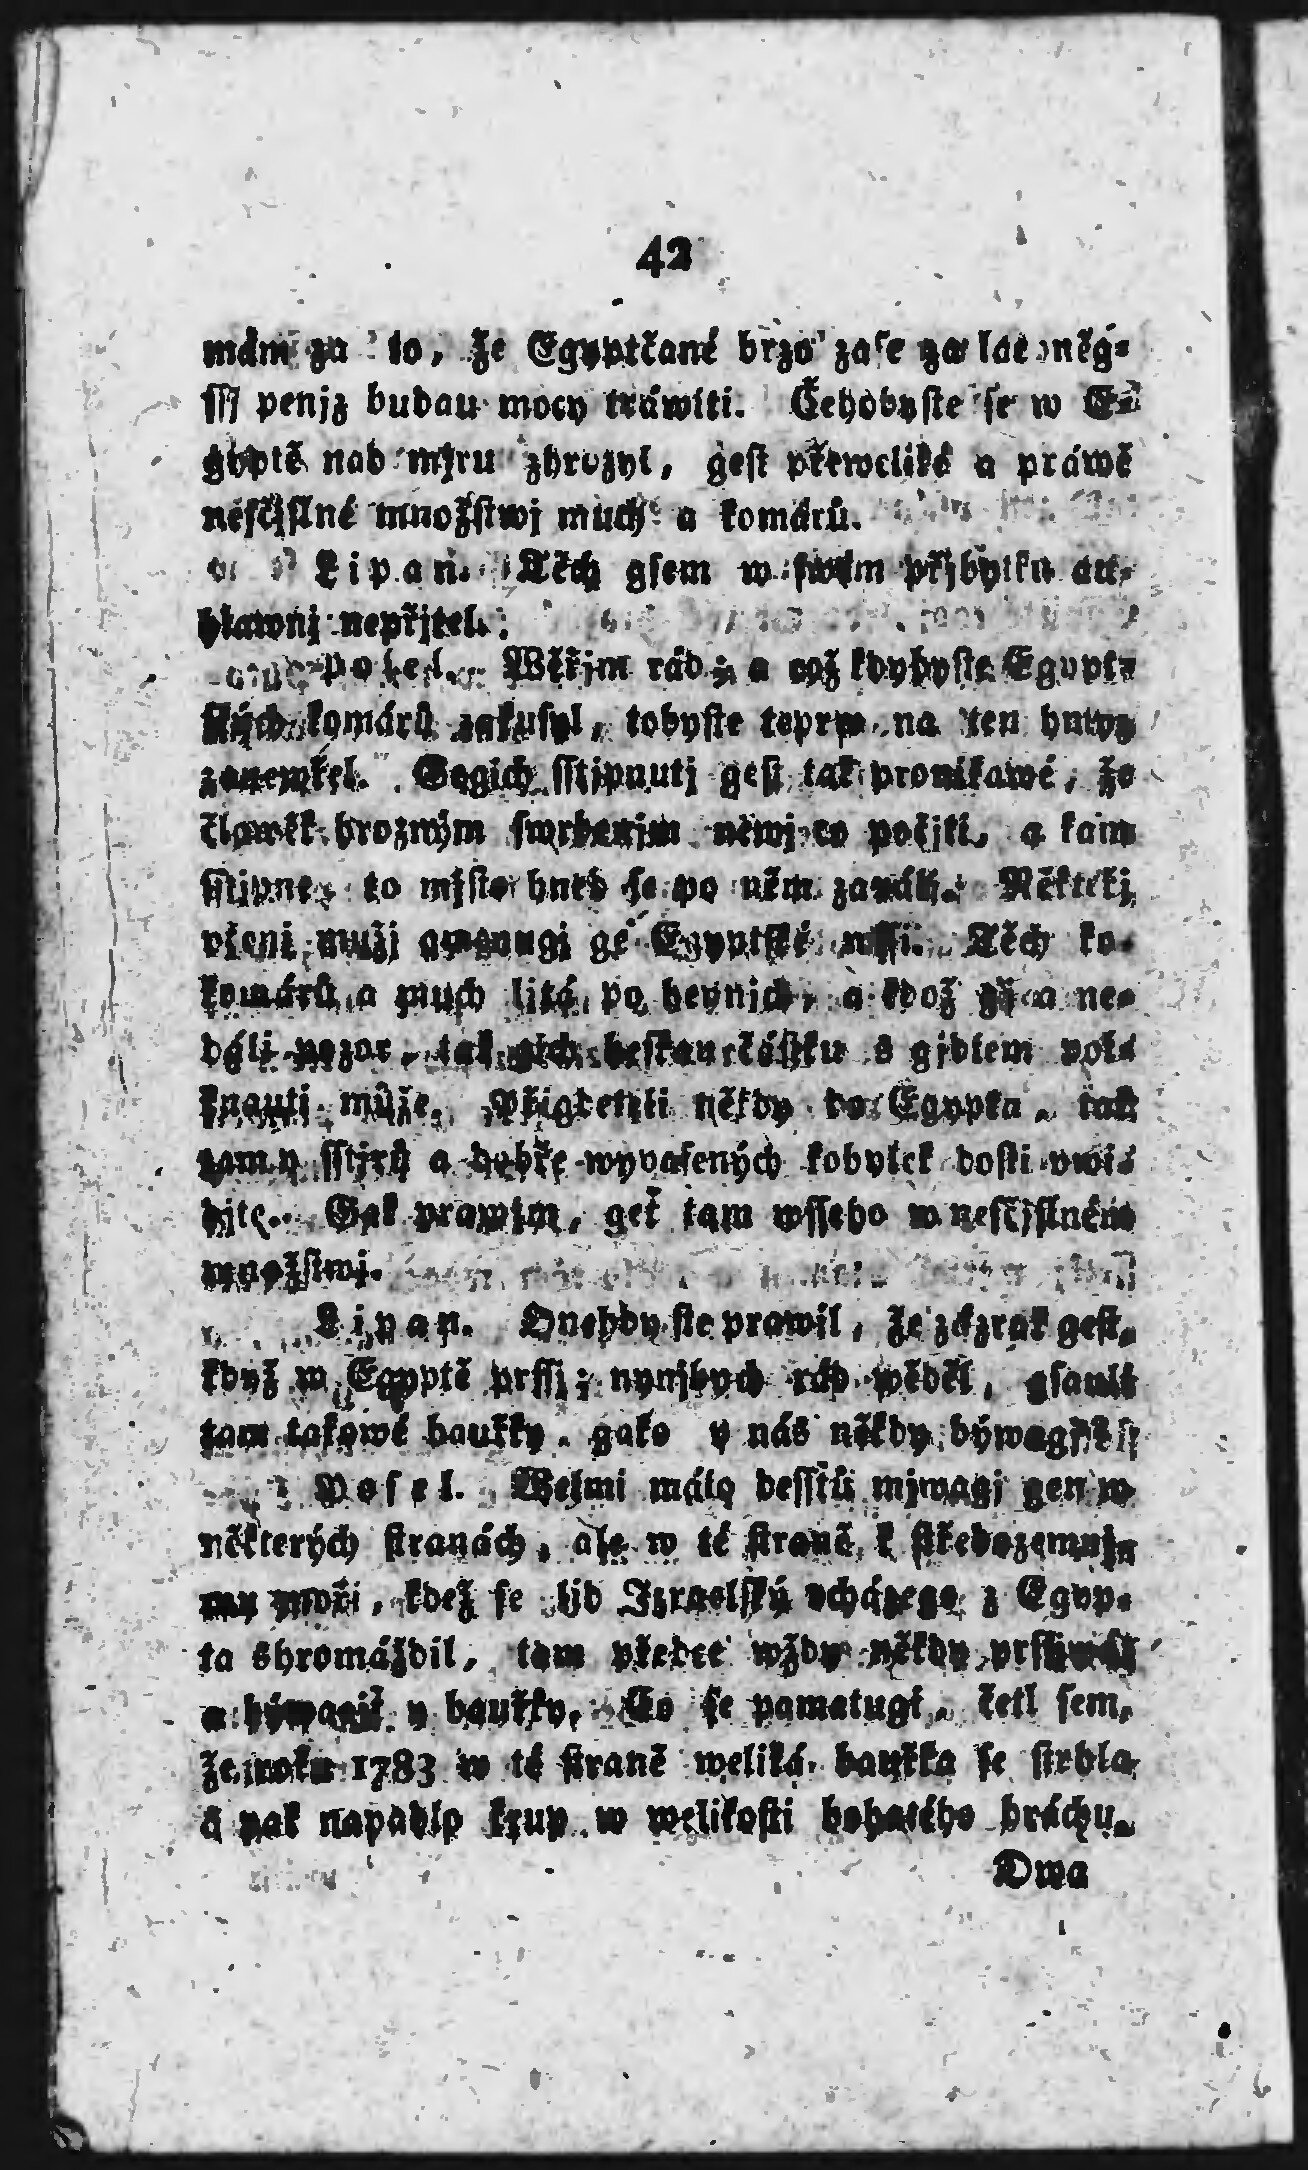 42
mám za to, že Egyptčané brzo zase za lacněg-
ssj penjz budau mocy tráwiti. Čehobyste se w E-
gyptě nad mjru zhrozyl, gest převeliké a práwě
nesčjslné množstwj much a komárů.
Lipan. Těch gsem w swém přjbytku au-
hlawnj nepřjtel.
Posel. Wěřjm rád; a což kdybyste Egypt-
ských komárů zakusyl, tobyste teprw na ten hmyz
zanewřel. Gegich sstjpnutj gest tak pronikawé, že
člowěk hrozným swrbenjm newj co počjti, a kam
sstjpne, to mjsto hned se po něm zanátj. Někteřj
včenj mužj gmenugj ge Egyptské mssi. Těch ko-
komárů a much ljtá po hegnich, a kdož gjda ne-
dáli pozor, tak gich hezkau částku s gjdlem polk-
knauti může. Přigdeteli někdy do Egypta, tak
tam y sstjrů a dobře wypasených kobylek dosti vwi-
djte. Gak prawjm, geť tam wsseho w nesčjslném
množstwj.
Lipan. Onehdy ste prawil, že zázrak gest,
když w Egyptě prssj; nynjbych rád wěděl, gsauli
tam takowé bauřky, gako v nás někdy býwagj?
Posel. Welmi málo desstů mjwagj gen w
některých stranách, ale w té straně k středozemnj-
mu moři, kdež se lid Izraelský vcházege z Egyp-
ta shromáždil, tam předce wždy někdy prssjwá,
a býwagjť y bauřky. Co se pamatugi, četl sem,
že roku 1783 w té straně weliká bauřka se strhla
a pak napadlo krup w welikosti bohatého hráchu.
Dwa